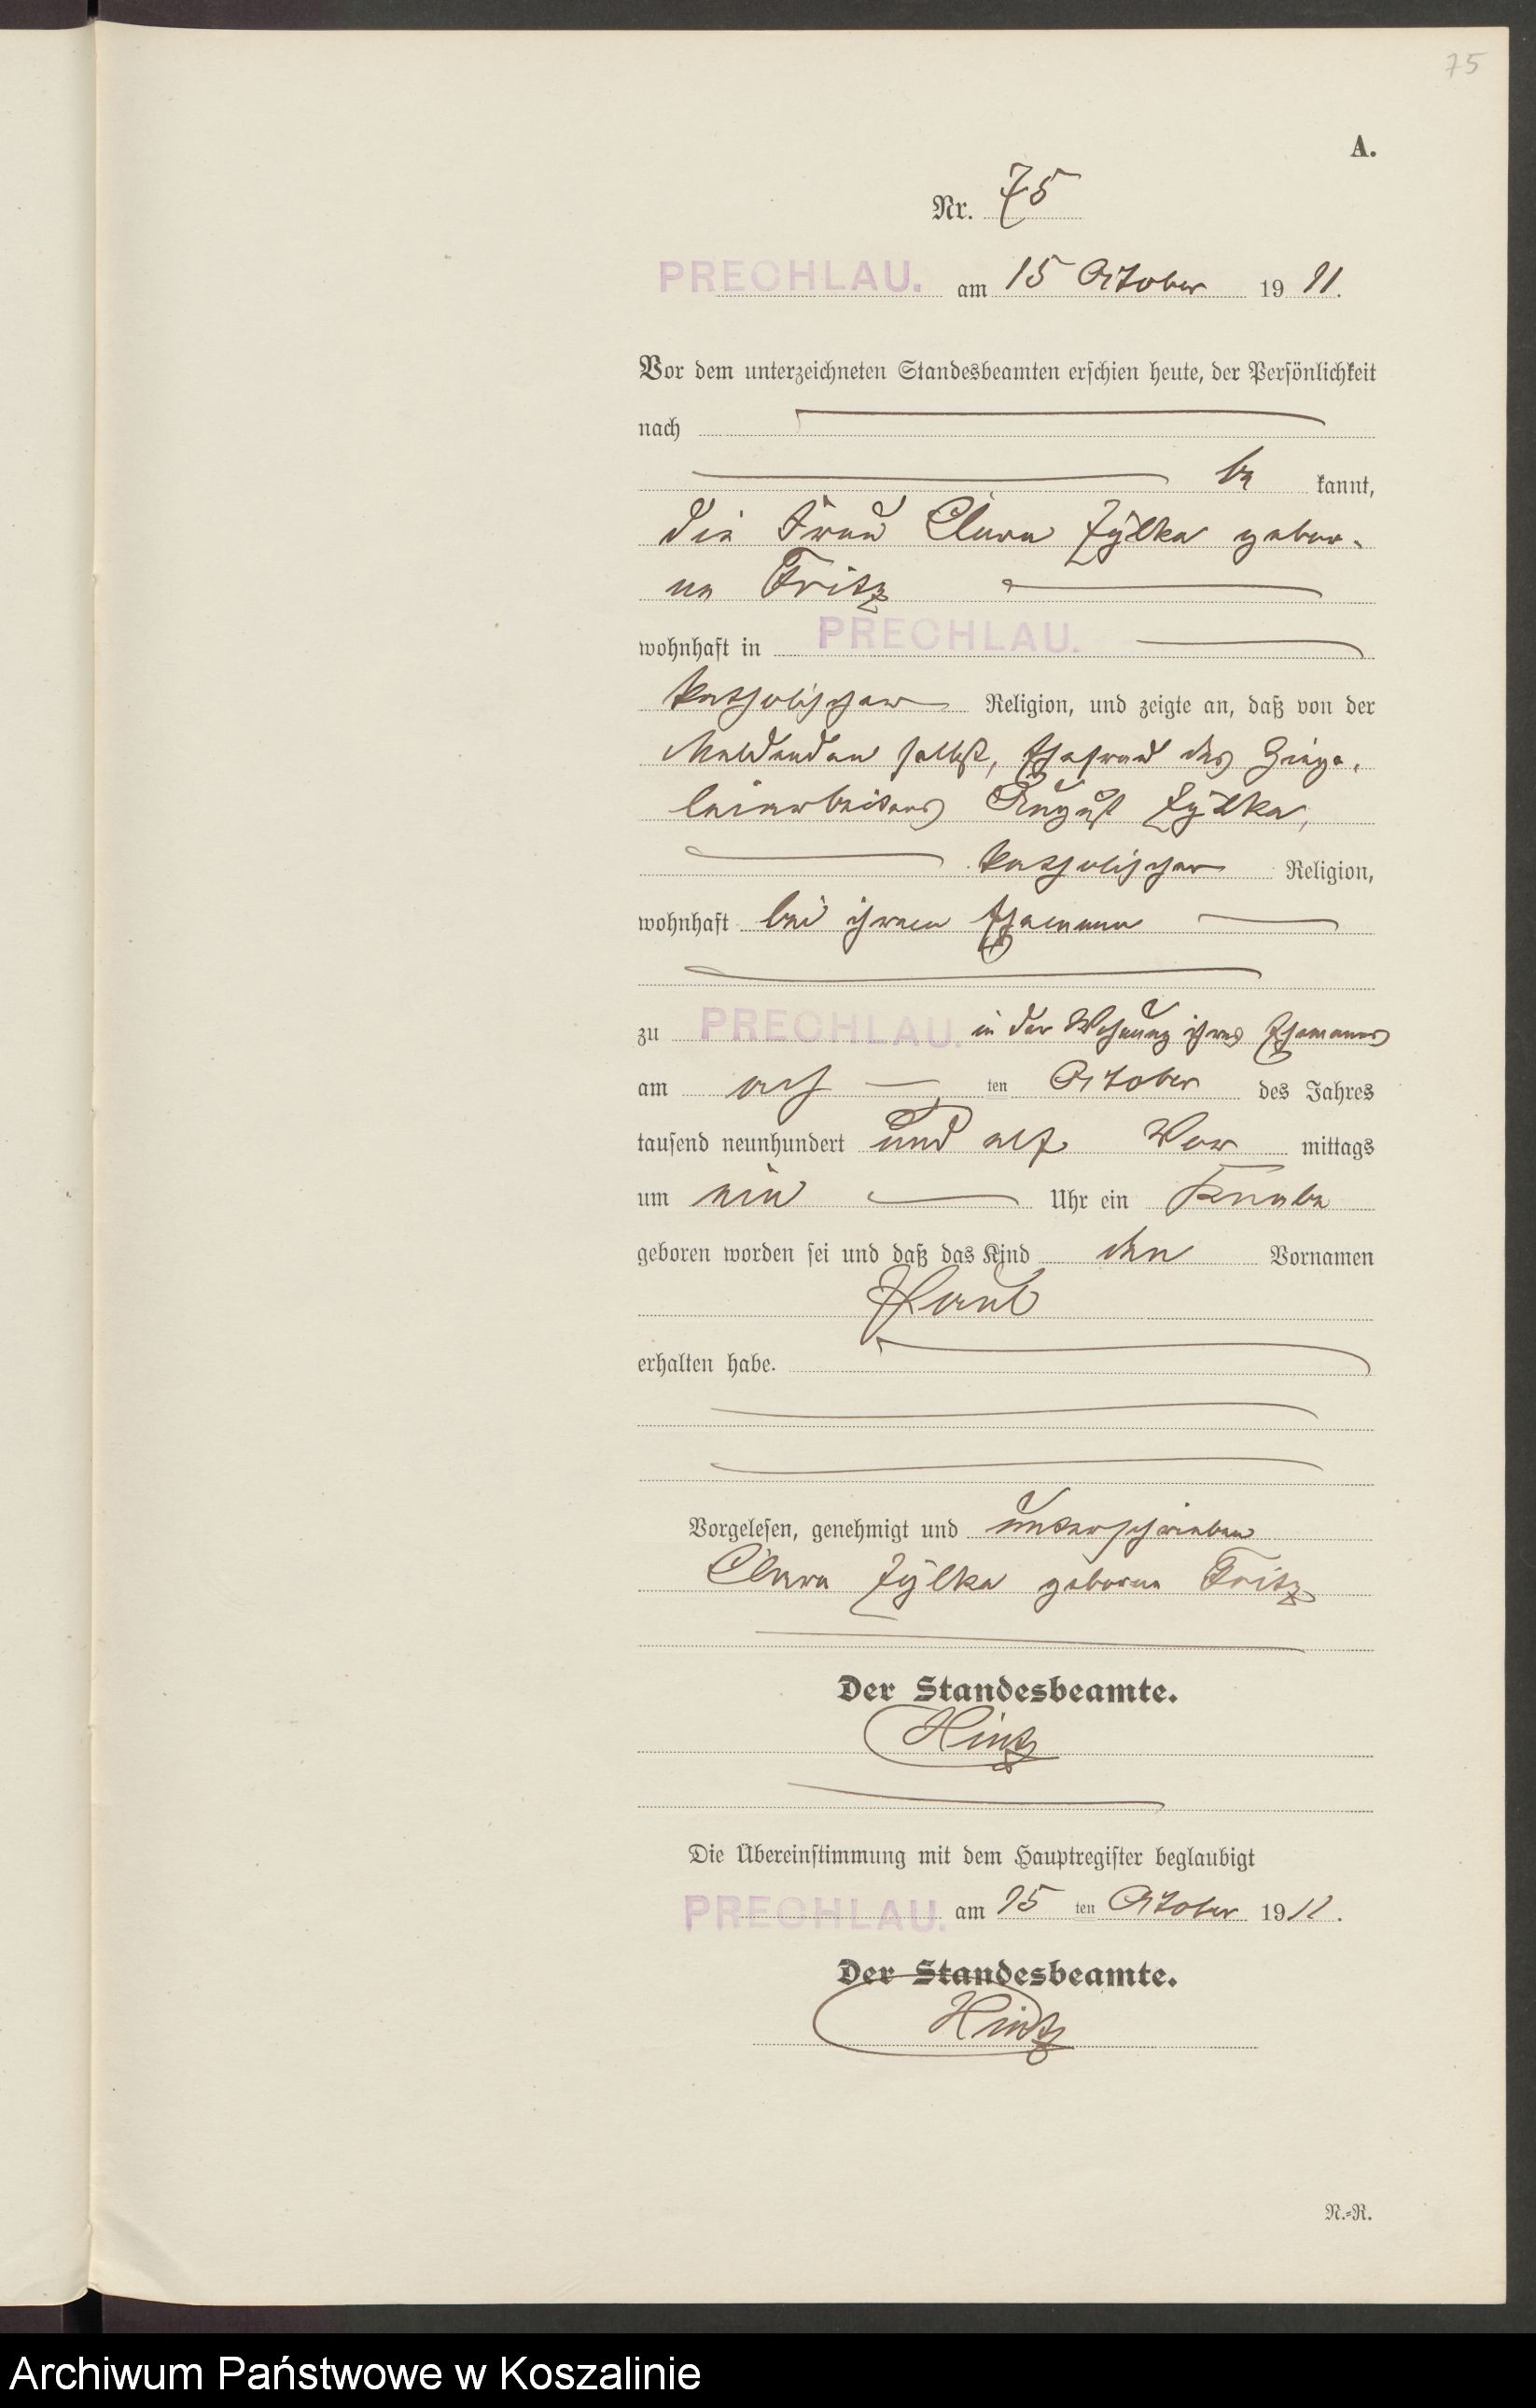 75
A.
Nr. 75
PRECHLAU. am 15 October 19 11.
Vor dem unterzeichneten Standesbeamten erschien heute, der Persönlichkeit
nach
be kannt,
die Frau Clara Zylka gebor-
ne Fritz
wohnhaft in PRECHLAU.
katholischer Religion, und zeigte an, daß von der
Meldenden selbst, Ehefrau des Ziege-
leiarbeiters August Zylka,
katholischer Religion,
wohnhaft bei ihrem Ehemann
zu PRECHLAU. in der Wohnung ihres Ehemannes
am acht ten October des Jahres
tausend neunhundert und elf Vor mittags
um ein Uhr ein Knabe
geboren worden sei und daß das Kind den Vornamen
Paul
erhalten habe.
Vorgelesen, genehmigt und unterschrieben
Clara Zylka geborne Fritz
Der Standesbeamte.
Hintz
Die Übereinstimmung mit dem Hauptregister beglaubigt
PRECHLAU. am 15 ten October 19 11.
Der Standesbeamte.
Hintz
N.-R.
Archiwum Państwowe w Koszalinie